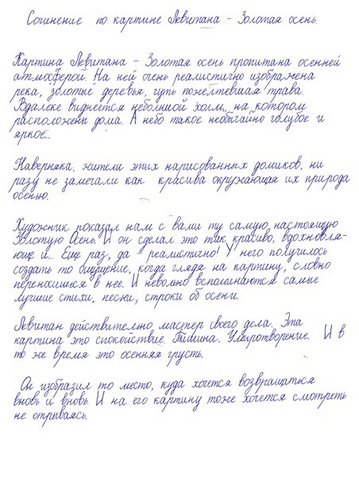 Сочинение по картине Левитана - Золотая осень.
Картина Левитана - Золотая осень пропитана осенней
атмосферой. На ней очень реалистично изображена
река, золотые деревья, чуть пожелтевшая трава.
Вдалеке виднеется небольшой холм, на котором
расположены дома. А небо такое необычайно голубое и
яркое.
Наверняка, жители этих нарисованных домиков, ни
разу не замечали как красива окружающая их природа
осенью.
Художник показал нам с вами ту самую настоящую
Золотую Осень. И он сделал это так красиво, вдохновля-
юще и.. Еще раз, да - реалистично! У него получилось
создать то ощущение, когда глядя на картину, словно
переносишься в нее. И невольно вспоминаются самые
лучшие стихи, песни, строки об осени.
Левитан действительно мастер своего дела. Эта
картина это спокойствие. Тишина. Умиротворение. И в
то же время это осенняя грусть.
Он изобразил то место, куда хочется возвращаться
вновь и вновь. И на его картину тоже хочется смотреть
не отрываясь.